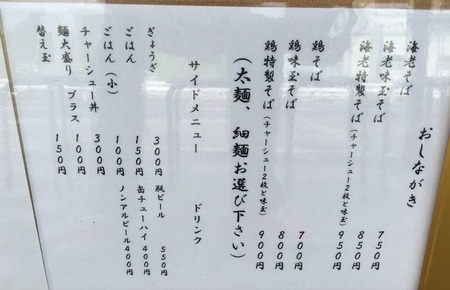 おしながき
海老そば 750円
海老味玉そば 850円
海老特製そば(チャーシュー2枚と味玉) 950円
鶏そば 700円
鶏味玉そば 800円
鶏特製そば(チャーシュー2枚と味玉) 900円
(太麺、細麺お選び下さい)
サイドメニュー
ドリンク
ぎょうざ 300円
ごはん 150円
ごはん(小) 100円
チャーシュー丼 300円
麺大盛り プラス 100円
替え玉 150円
瓶ビール 550円
缶チューハイ 400円
ノンアルビール 400円